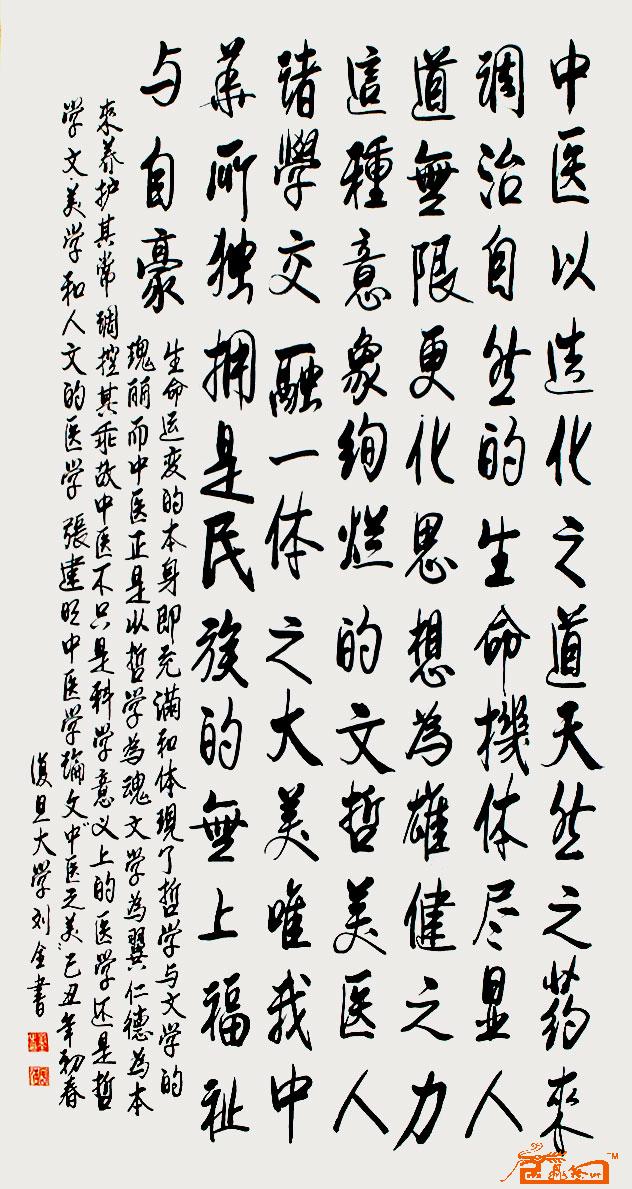 中医以造化之道天然之药来
调治自然的生命機体尽显人
道無限更化思想為雄健之力
這種意象绚烂的文哲美医人
诸學交融一体之大美唯我中
華所独拥是民族的無上福祉
与自豪
生命运变的本身即充满和体現了哲学与文学的
瑰丽而中医正是以哲学為魂文学為翼仁德為本
來养护其常调控其乖故中医不只是科学意义上的医学还是哲
学文美学和人文的医学 張建明中医学論文"中医之美"己丑年初春
復旦大学刘金書